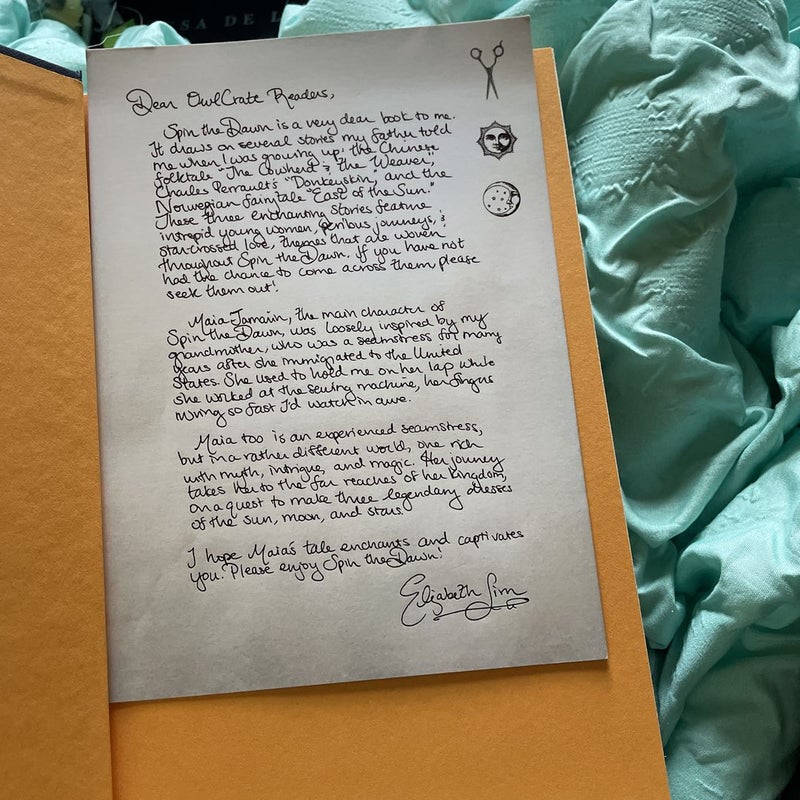 SA DE L
Dear OwlCrate Readers,
Spin the Dawn is a very dear book to me.
It draws on several stories my father told
me when I was growing up: the Chinese
folktale "The Cowherd & the Weaver,"
Charles Perrault's "Donkeyskin," and the
Norwegian fairytale "East of the Sun."
These three enchanting stories feature
intrepid young women, perilous journeys, &
star-crossed love, themes that are woven
throughout Spin the Dawn. If you have not
had the chance to come across them please
seek them out!
Maia Tamarin, the main character of
Spin the Dawn, was loosely inspired by my
grandmother, who was a seamstress for many
years after she immigrated to the United
States. She used to hold me on her lap while
she worked at the sewing machine, her fingers
moving so fast I'd watch in awe.
Maia too is an experienced seamstress,
but in a rather different world, one rich
with myth, intrigue, and magic. Her journey
takes her to the far reaches of her kingdom,
on a quest to make three legendary dresses
of the sun, moon, and stars.
I hope Maia's tale enchants and captivates
you. Please enjoy Spin the Dawn!
Elizabeth Lim